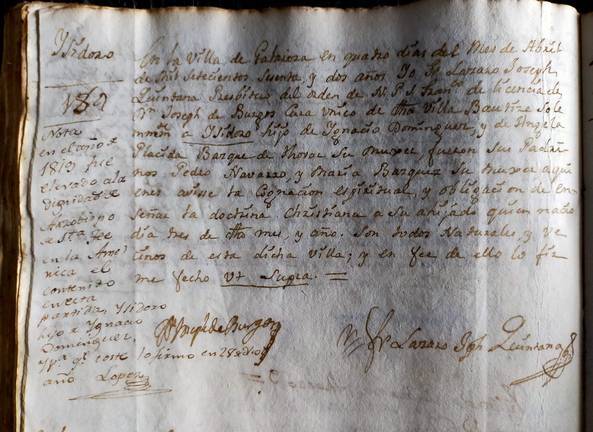 Ysidoro
En la Villa de Galaroza en quatro dias del Mes de Abril
de Mil Setecientos Sesenta, y dos años Yo Fr. Lazaro Joseph
Quintana Presbitero del orden de N. P. S. Franco. de licencia de
Dn. Joseph de Burgos Cura Unico de dha Villa Bautize Sole
mnemte. a Ysidoro hijo de Ignacio Dominguez, y de Angela
Placida Bazquez de Su Muxer fueron Sus Padri
nos Pedro Navarro, y Maria Bazquez Su Muxer a qui
enes avisse la Cognacion espiritual, y obligacion de en
señar la doctrina Christiana a Su ahijado quien nacio
dia tres de dho mes, y año. Son todos Naturales, y Ve
cinos de esta dicha Villa; y en fee de ello lo fir
me fecho Ut Supra.
Nota
en el año de
1819 fue
elevado a la
Dignidad de
Arzobispo
de Sta. Fee
en la Ame
rica el
contenido
en esta
partida, Ysidoro
hijo de Ignacio
Dominguez,
y pa. qe. coste lo firmo en 28 de
año Lopez
Dn. Joseph de Burgos
Fr. Lazaro Jph. Quintana